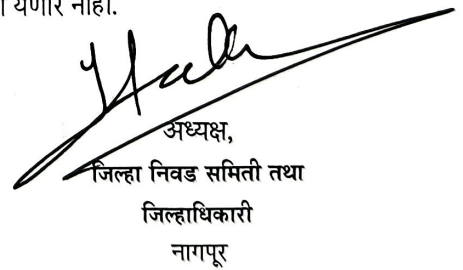 येणार नाही.
अध्यक्ष,
जिल्हा निवड समिती तथा
जिल्हाधिकारी
नागपूर